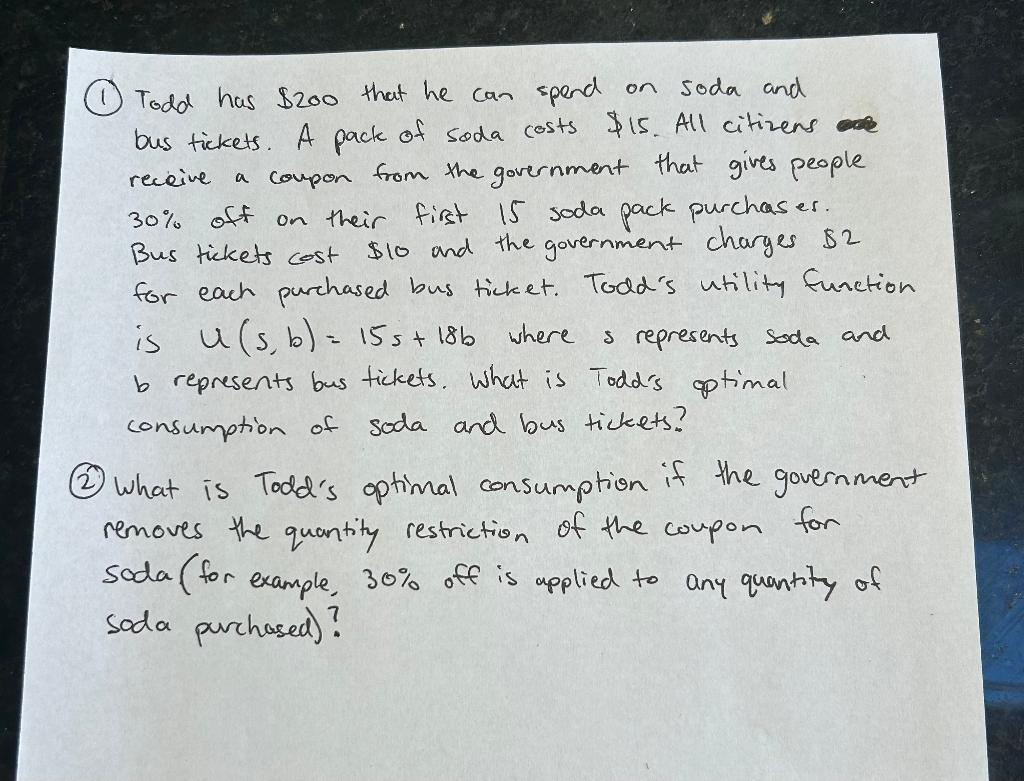 ① Todd has $200 that he can spend on soda and
bus tickets. A pack of soda costs $15. All citizens
receive a coupon from the government that gives people
30% off on their first 15 soda pack purchases.
Bus tickets cost $10 and the government charges $2
for each purchased bus ticket. Todd's utility function
is U(s, b) = 15s + 18b where s represents soda and
b represents bus tickets. What is Todd's optimal
consumption of soda and bus tickets?
② What is Todd's optimal consumption if the government
removes the quantity restriction of the coupon for
soda (for example, 30% off is applied to any quantity of
soda purchased)?